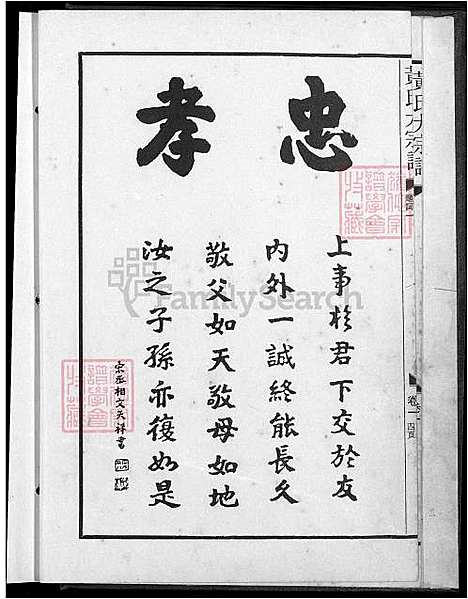 忠孝
上事於君下交於友
內外一誠終能長久
敬父如天敬母如地
汝之子孫亦復如是
宋丞相文天祥書
黃氏大宗譜
譜學會
特藏
譜學會
特藏
FamilySearch